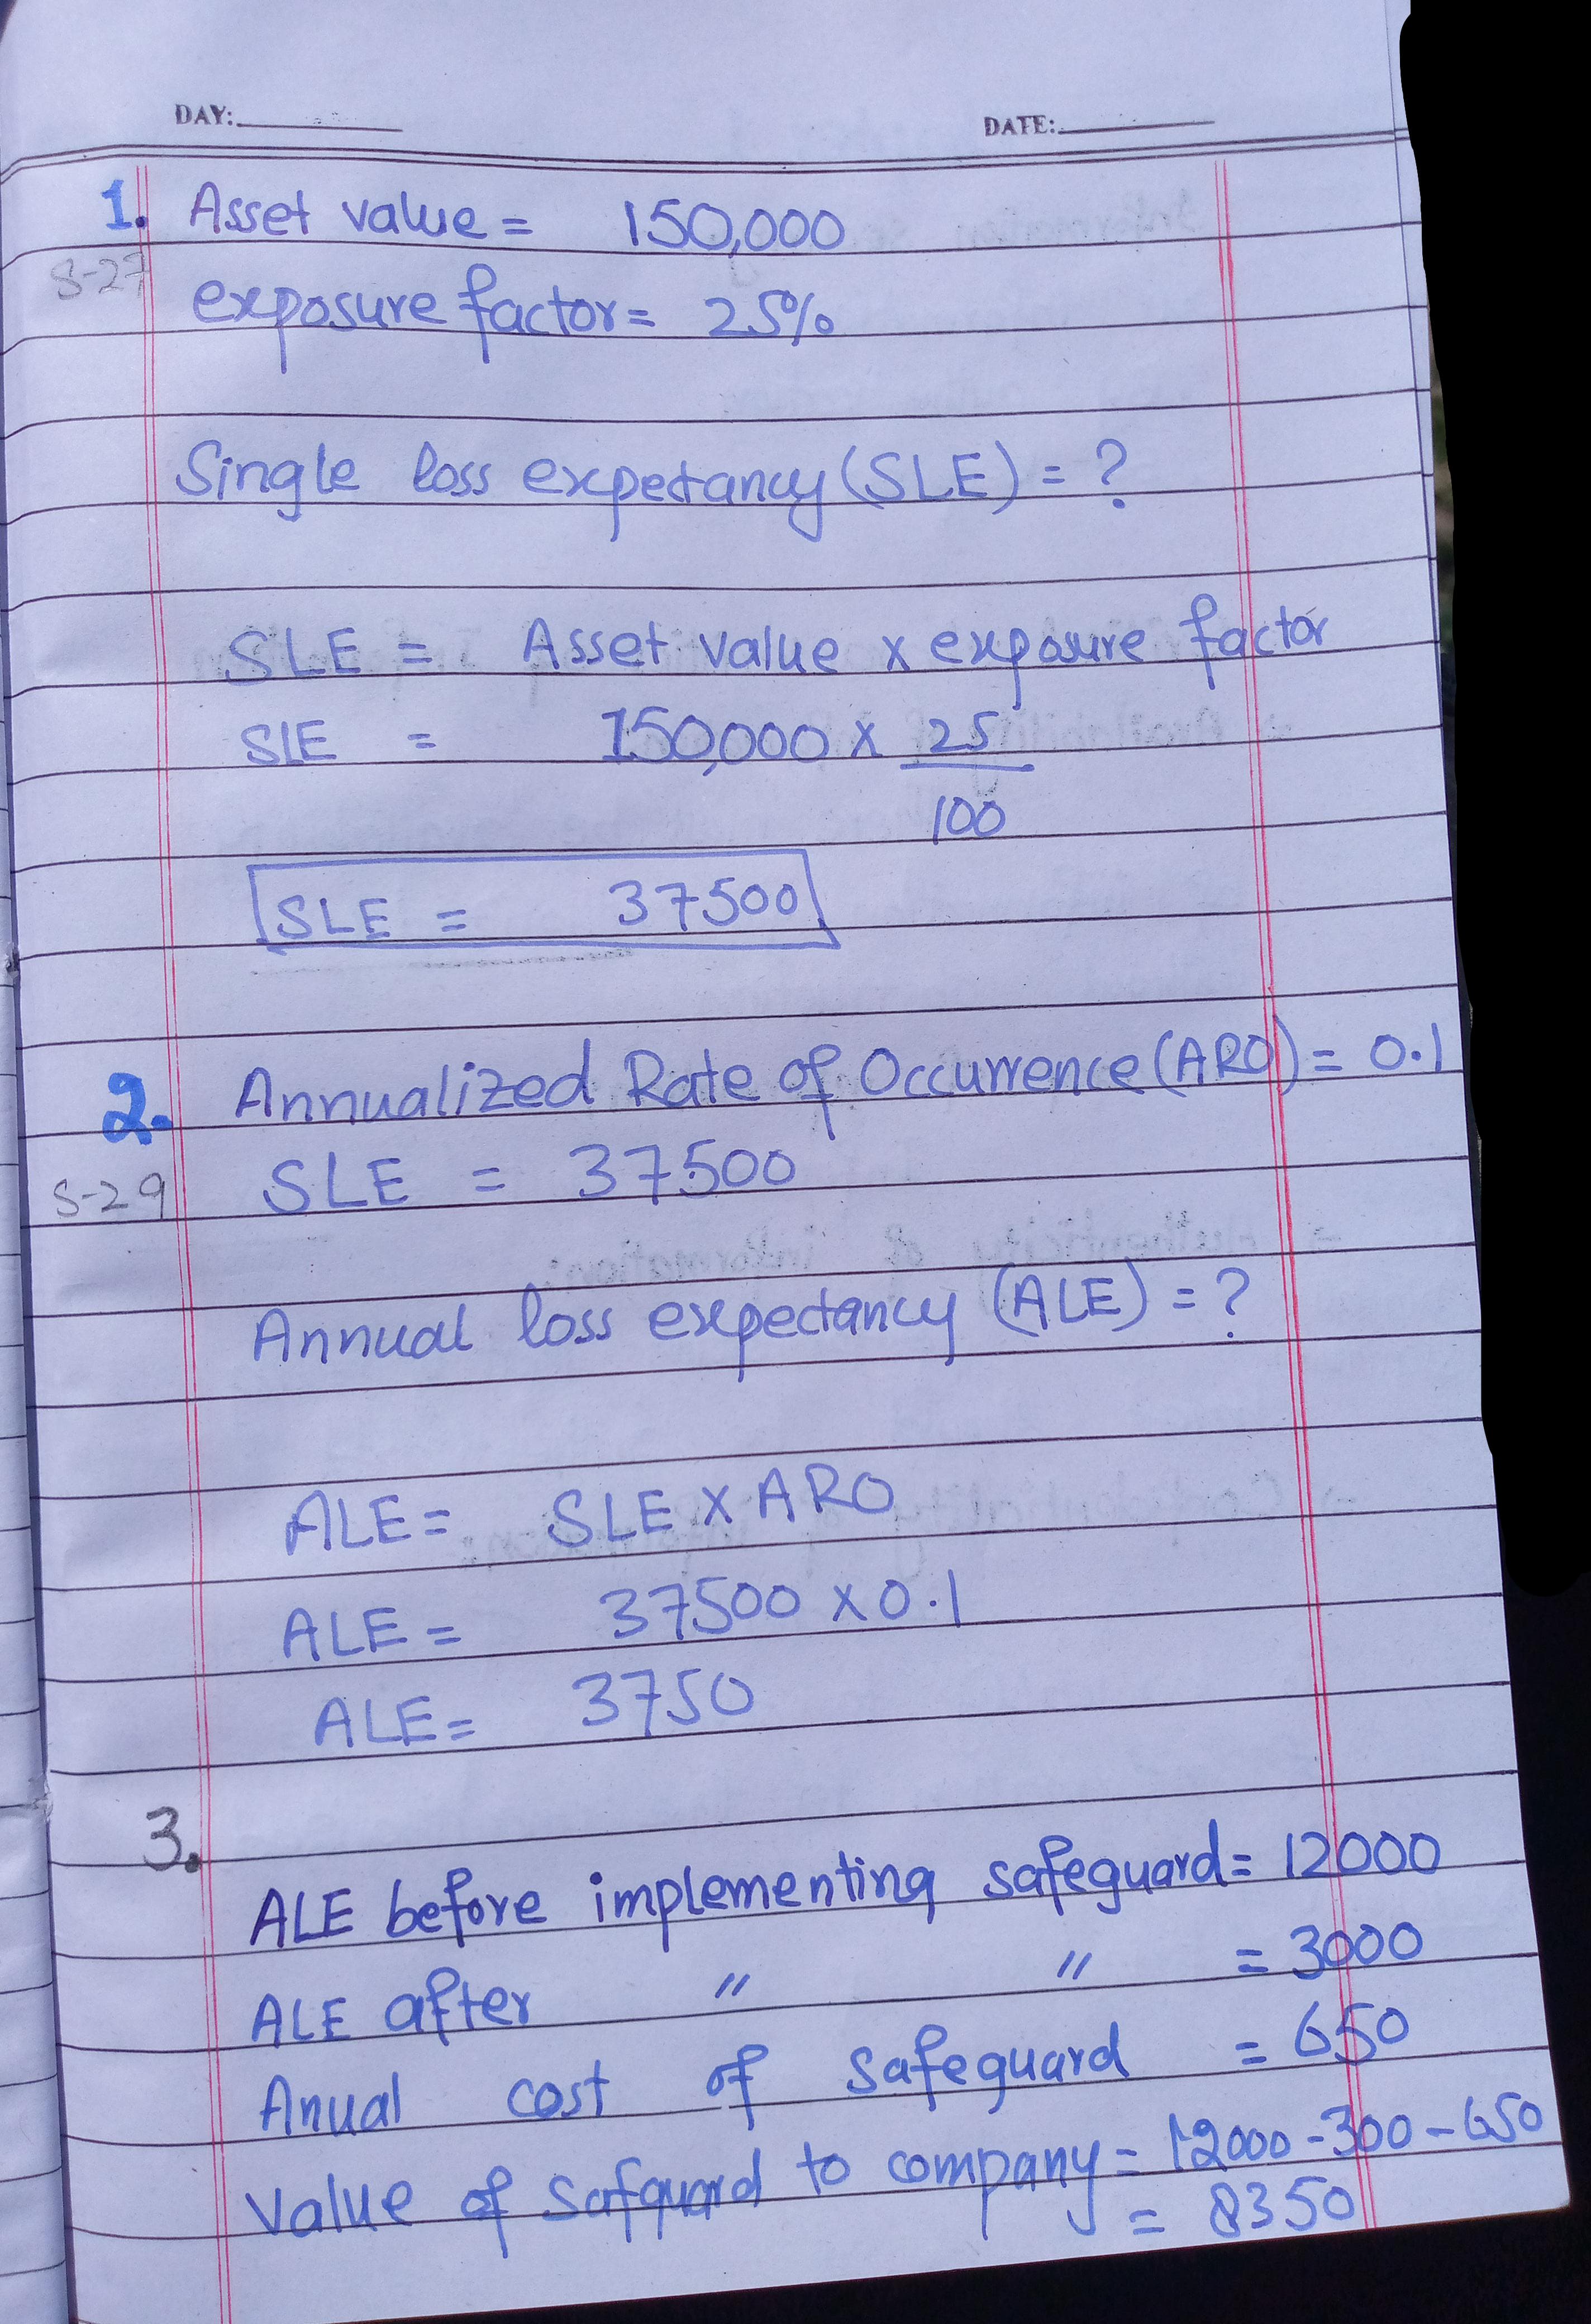 DAY: DATE:
1. Asset value = 150,000
S-27
exposure factor = 25%
Single loss expectancy (SLE) = ?
SLE = Asset value x exposure factor
SLE = 150,000 x 25
100
SLE = 37500
2. Annualized Rate of Occurrence (ARO) = 0.1
S-29 SLE = 37500
Annual loss expectancy (ALE) = ?
ALE = SLE X ARO
ALE = 37500 x 0.1
ALE = 3750
3.
ALE before implementing safeguard = 12000
ALE after " " = 3000
Anual cost of safeguard = 650
Value of Safguard to company = 12000 - 300 - 650
= 8350